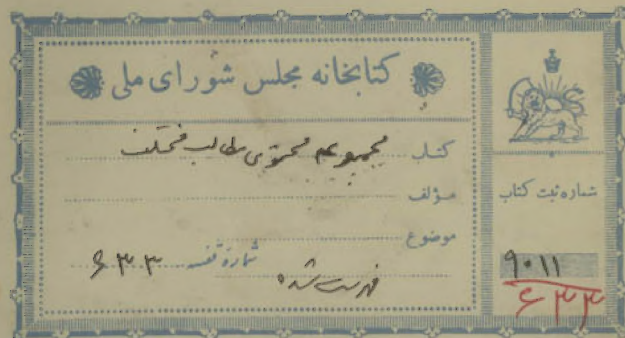 کتابخانه مجلس شورای ملی
کتاب مجموعه محتوی مطالب مختلف
مؤلف
موضوع
شماره قفسه ۶۳۳
فهرست شده
شماره ثبت کتاب
۹۰۱۱
۶۳۳